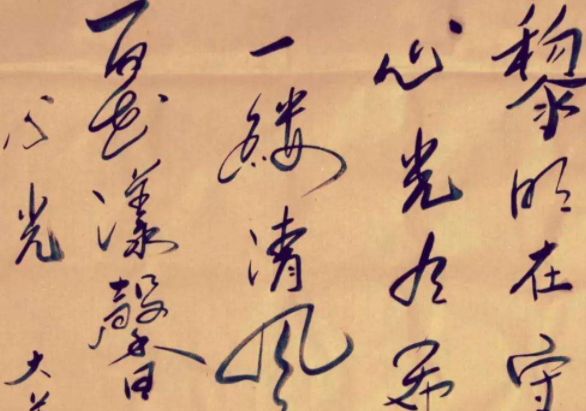 黎明在守
心光
一缕清风
百花漾馨
心光
大